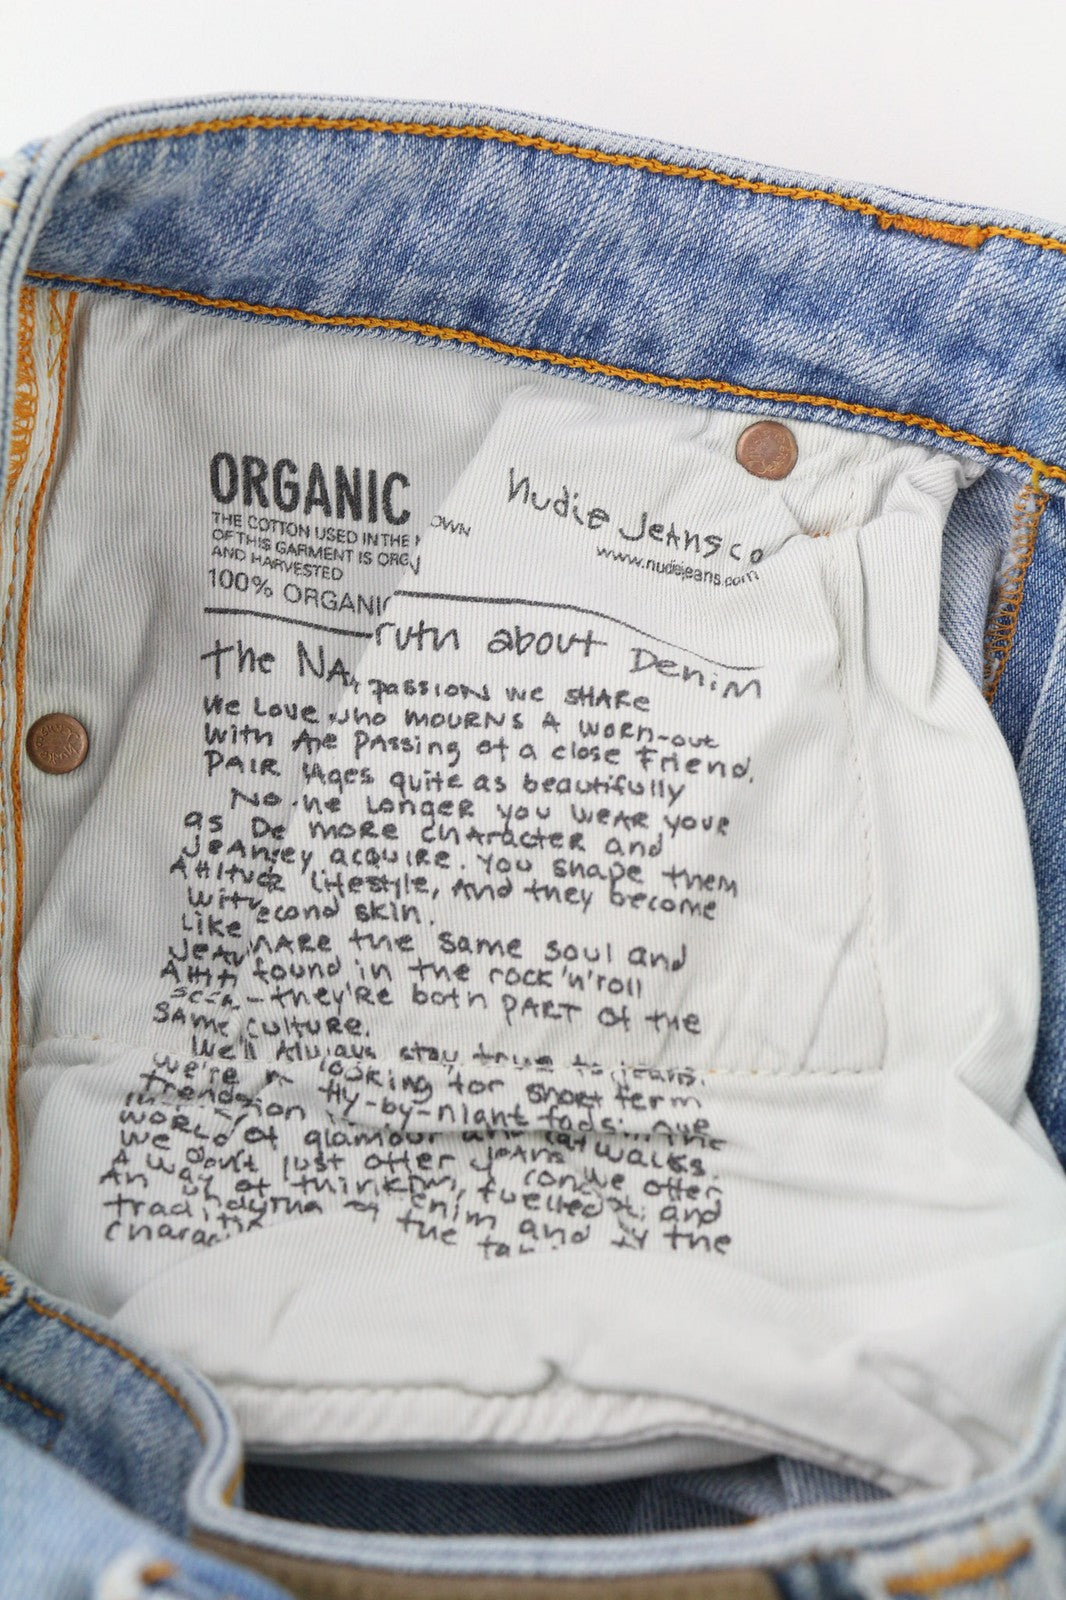 ORGANIC
THE COTTON USED IN THE
OWN
OF THIS GARMENT IS ORG
AND HARVESTED
100% ORGANI
Nudie Jeans co
www.nudiejeans.com
the NA ruth about Denim
We Love passion we share
With who mourns a worn-out
Pair the passing of a close friend.
No ages quite as beautifully
as De he longer you wear your
Jean more character and
Attitude ey acquire. You shape them
With lifestyle, and they become
Like econd skin.
Jean hare the same soul and
Attit found in the rock'n'roll
scen - they're both part of the
same culture.
We'll always stay true to jeans.
We're looking for short term
trends fly-by-night fads. the
world of glamour and catwalks.
We don't just offer jeans we offer
A way of thinking, fuelled and
An enim and by the
tradi the
charac